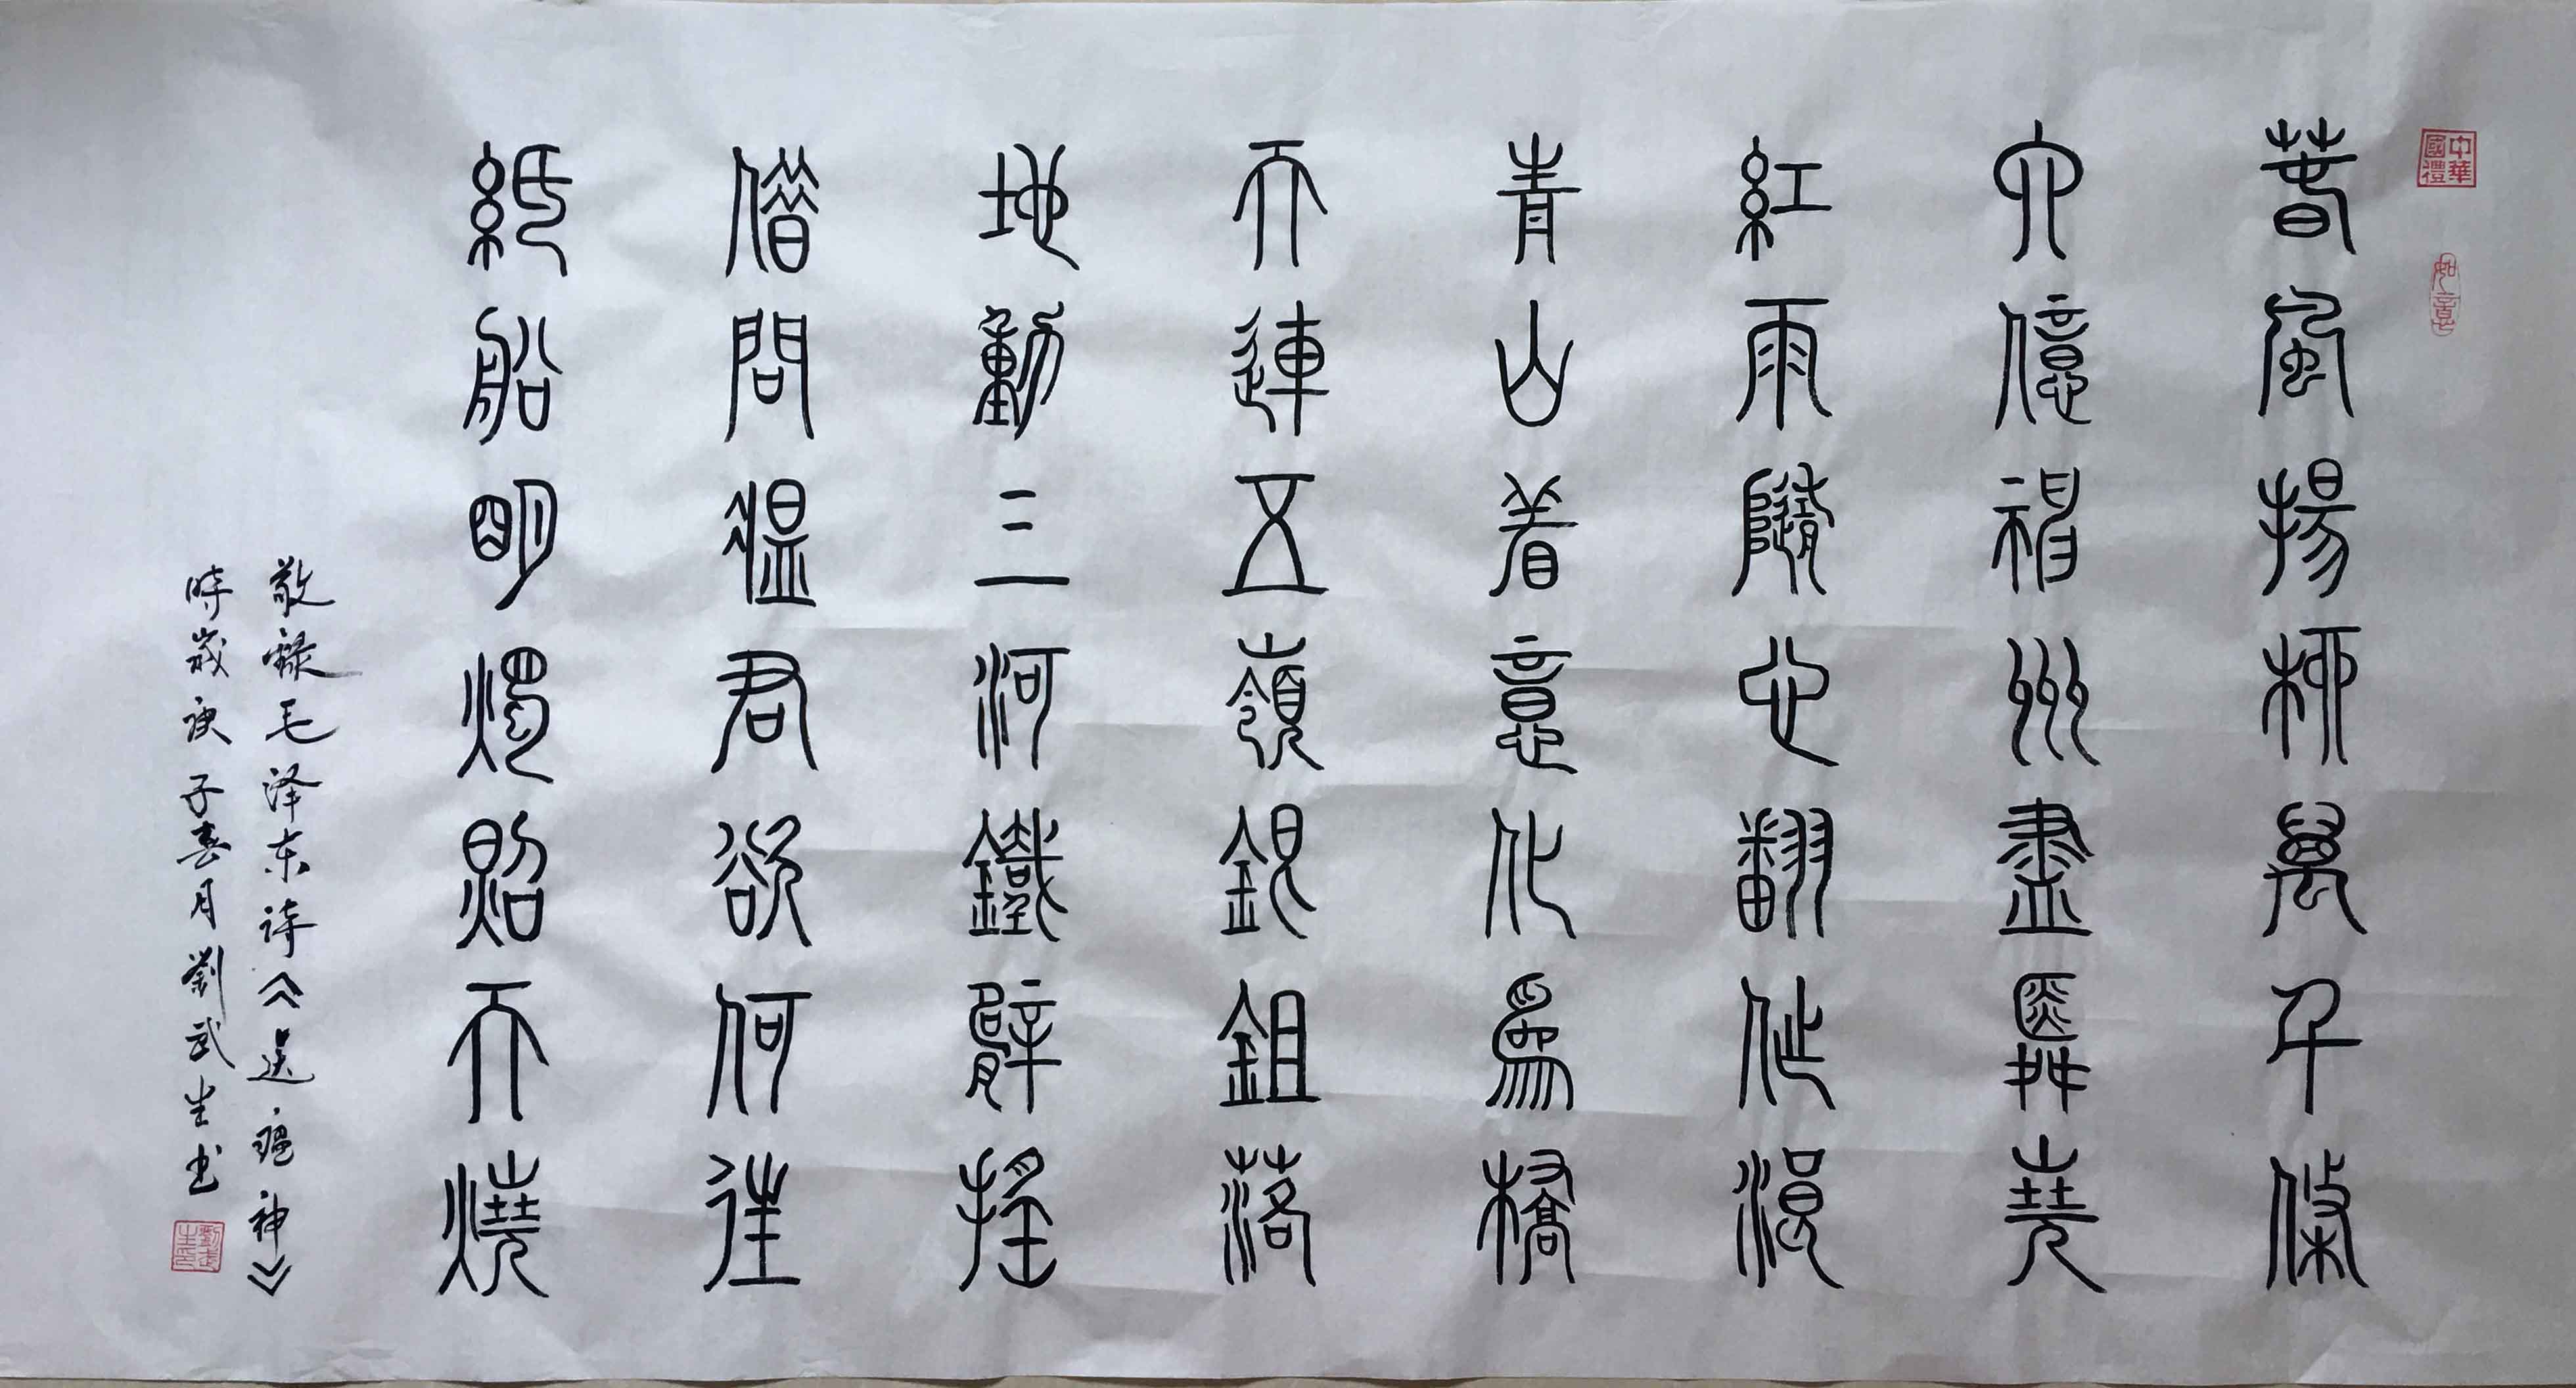 中華國禮
如意
春風揚柳萬千條
六億神州盡舜堯
紅雨隨心翻作浪
青山着意化為橋
天連五嶺銀鉏落
地動三河鐵臂搖
借問瘟君欲何往
紙船明燭照天燒
敬録毛泽东诗《送瘟神》
時歲庚子春月劉武生书
劉武生印